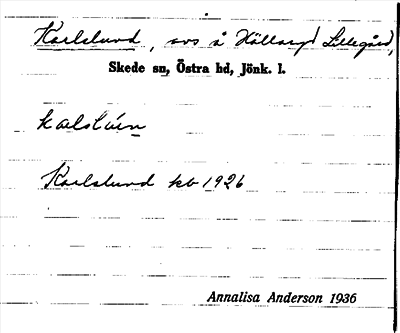 Karlslund, avs å Hällaryd Lillegård,
Skede sn, Östra hd, Jönk. l.
kalslún
Karlslund kb 1926
Annalisa Anderson 1936